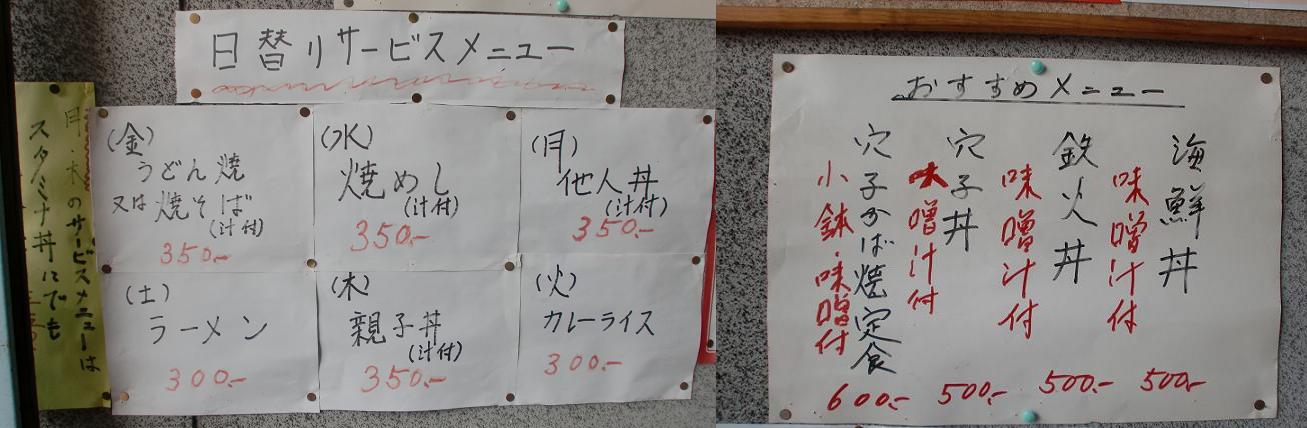 日替りサービスメニュー
(月)
他人丼
(汁付)
350.-
(火)
カレーライス
300.-
(水)
焼めし
(汁付)
350.-
(木)
親子丼
(汁付)
350.-
(金)
うどん焼
又は焼そば
(汁付)
350.-
(土)
ラーメン
300.-
月・木のサービスメニューは
スタミナ丼にでも
おすすめメニュー
海鮮丼
味噌汁付
500.-
鉄火丼
味噌汁付
500.-
穴子丼
味噌汁付
500.-
穴子かば焼定食
小鉢・味噌付
600.-